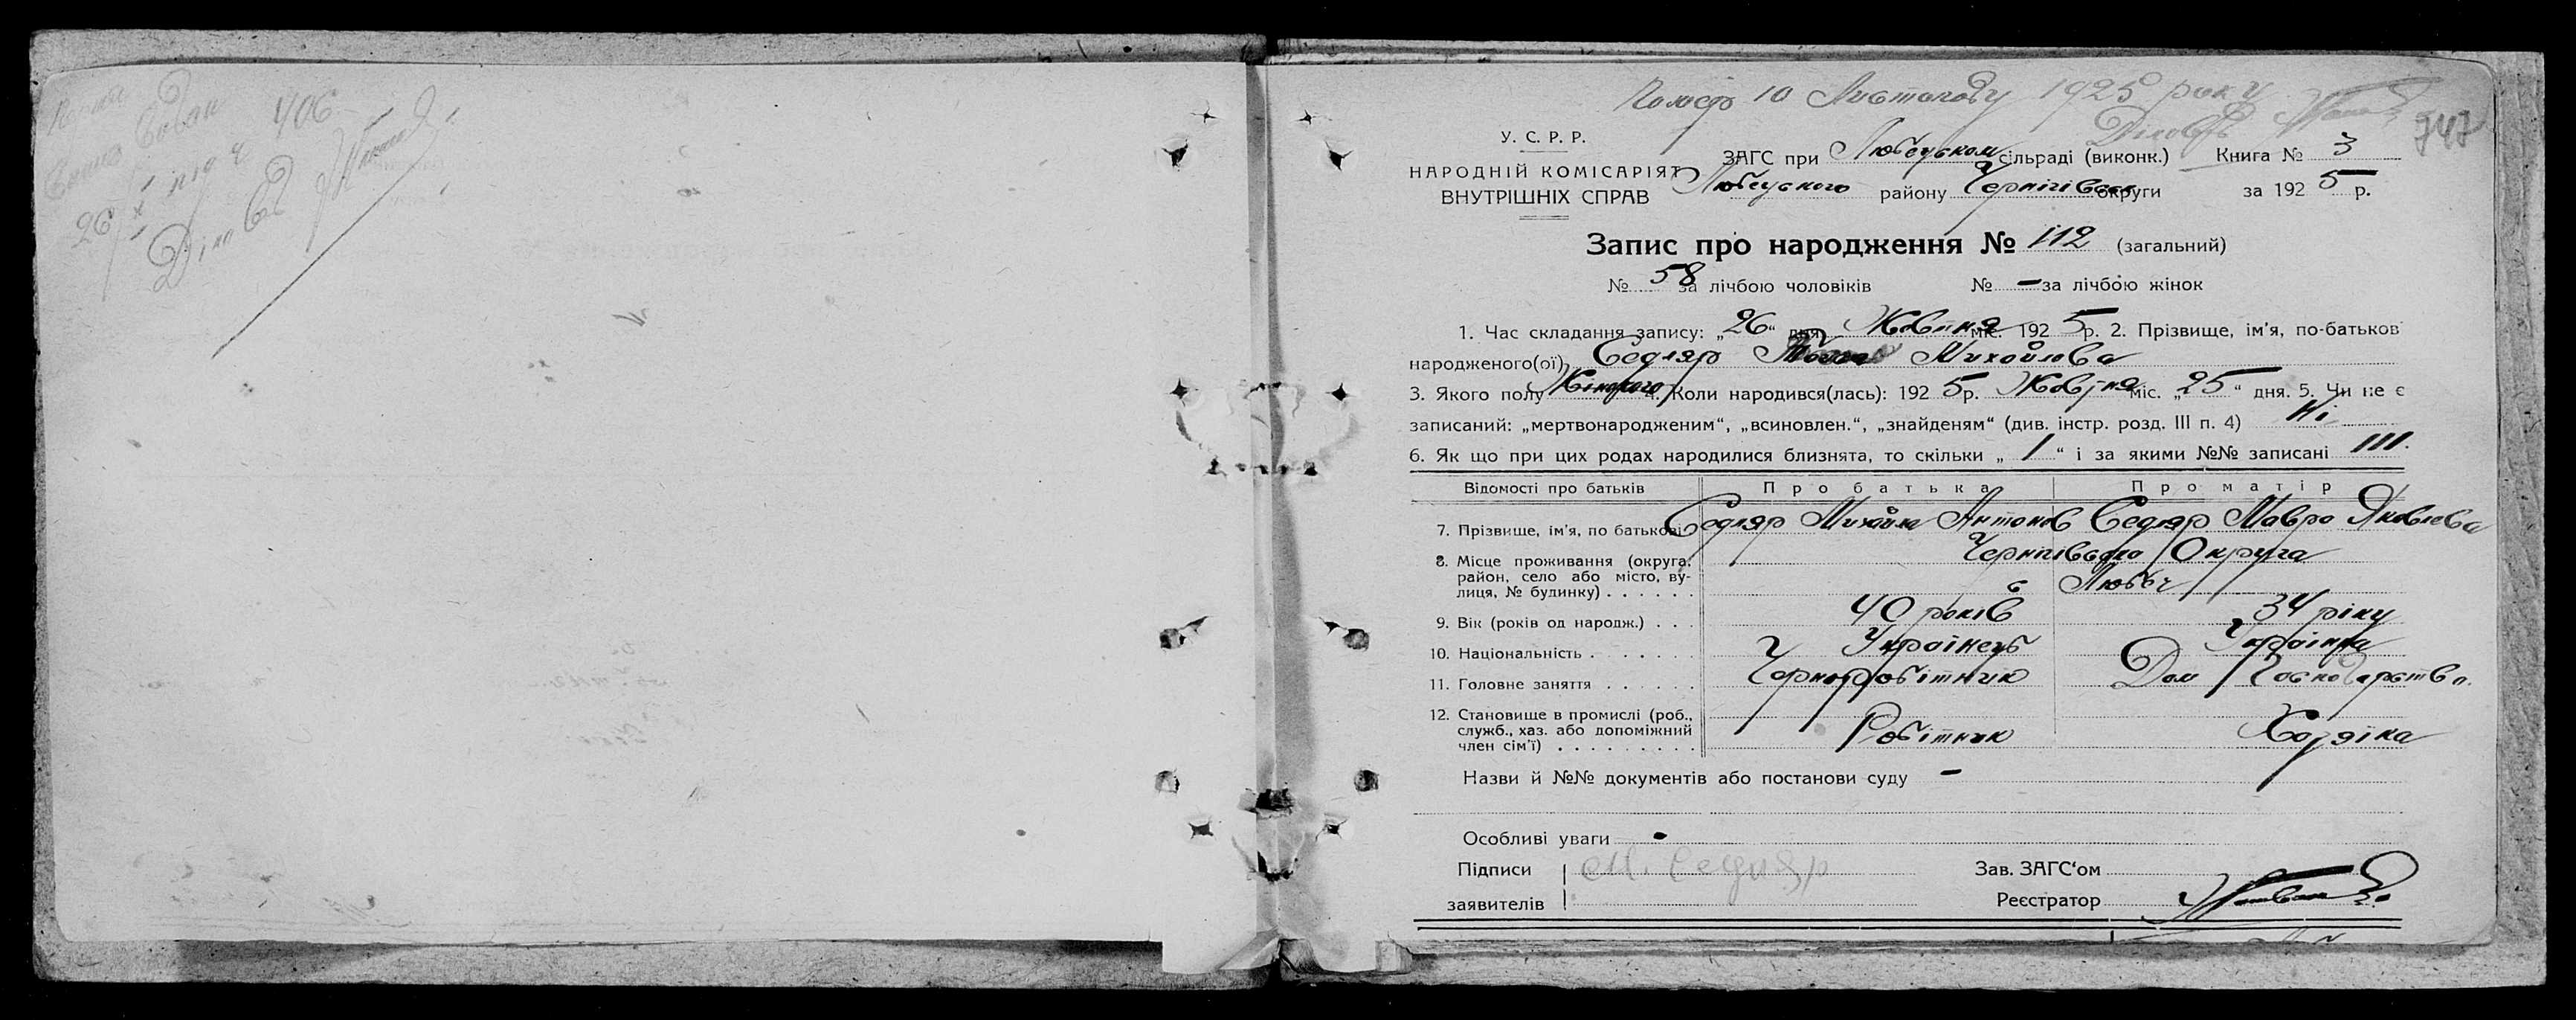 406
26
Помер 10 Листопаду 1925 року
747
У. С. Р. Р.
НАРОДНІЙ КОМІСАРІЯТ
ВНУТРІШНІХ СПРАВ
ЗАГС при Любецьком сільраді (виконк.) Книга № 3
Любецького району Чернігівсько округи за 192 5 р.
Запис про народження № 112 (загальний)
№ 58 за лічбою чоловіків № — за лічбою жінок
1. Час складання запису: „26“ дня Жовтня міс. 192 5 р. 2. Прізвище, ім'я, по-батьков
народженого(ої) Седляр Михайлова
3. Якого полу Жіночого 4. Коли народився(лась): 192 5 р. Жовтня міс. „25“ дня. 5. Чи не є
записаний: „мертвонародженим“, „всиновлен.“, „знайденям“ (див. інстр. розд. III п. 4) Ні
6. Як що при цих родах народилися близнята, то скільки „1“ і за якими №№ записані 111.
Відомості про батьків Про батька Про матір
7. Прізвище, ім'я, по батькові Седляр Михайло Антонов Седляр Мавра Яковлева
8. Місце проживання (округа, район, село або місто, вулиця, № будинку) Чернігівська Округа
с Любеч
9. Вік (років од народж.) 40 років 34 ріку
10. Національність Українець Українка
11. Головне заняття Чорноробітник Дом Госнодарство.
12. Становище в промислі (роб., служб., хаз. або допоміжний член сім'ї) Робітник Хозяїка
Назви й №№ документів або постанови суду —
Особливі уваги
Підписи М. Седляр Зав. ЗАГС'ом
заявителів Реєстратор